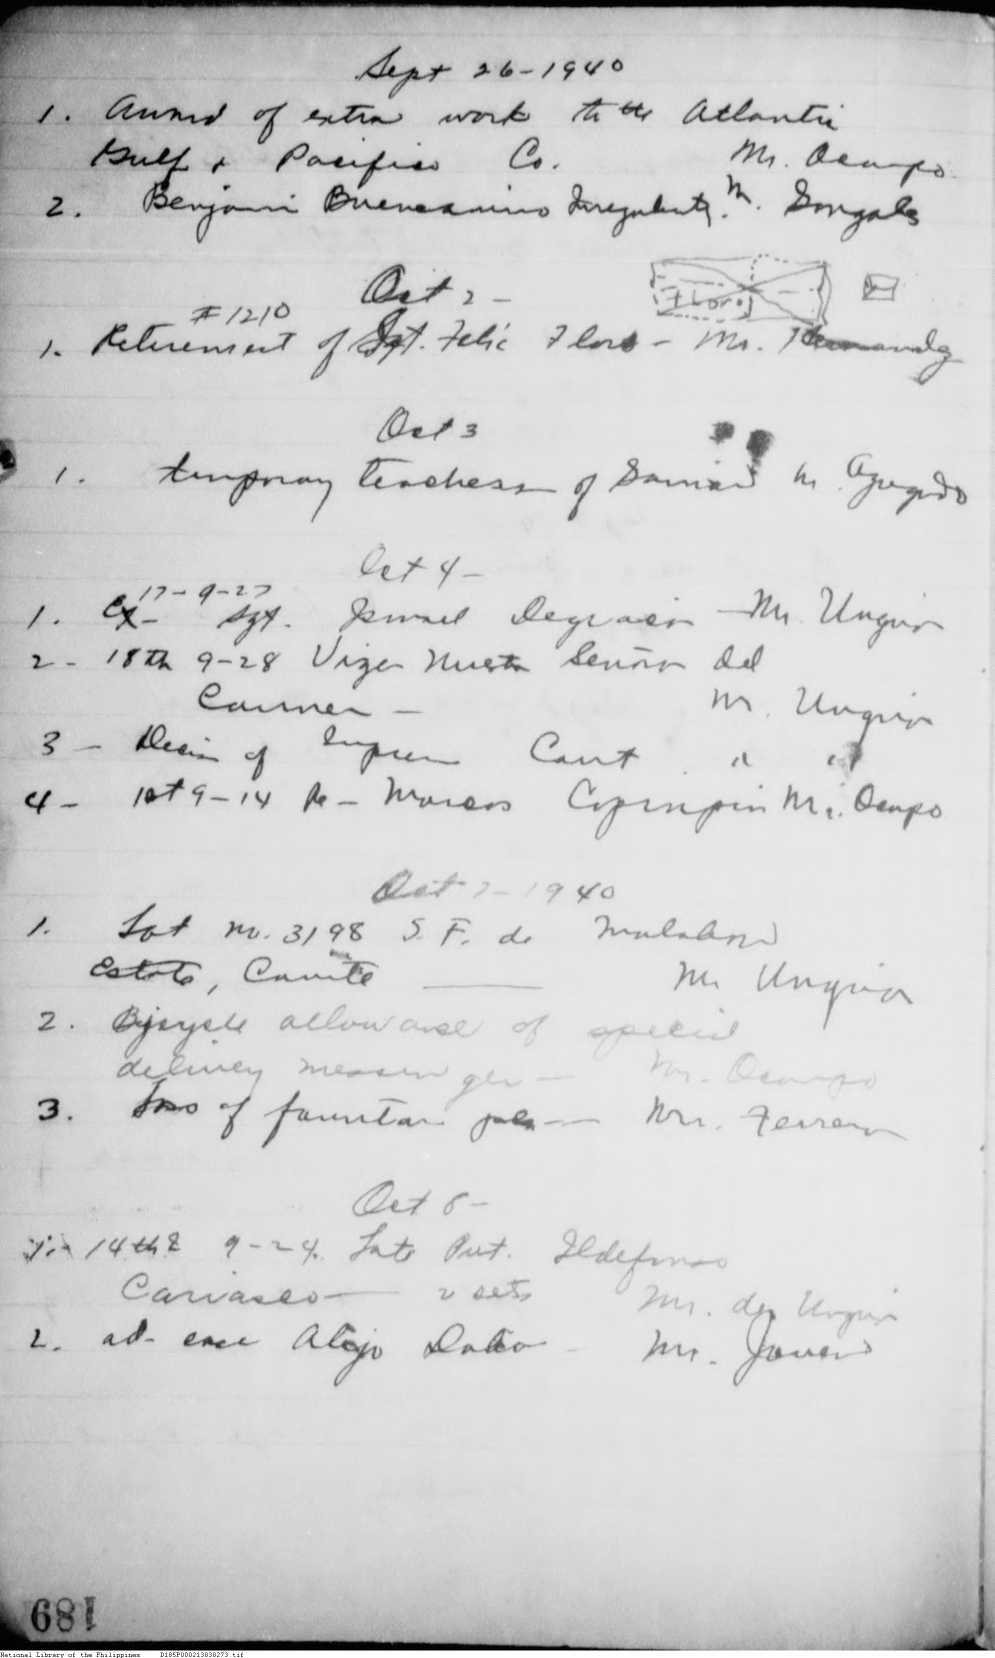 Sept 26-1940
1. Award of extra work to the Atlantic
Gulf & Pacific Co. Mr. Ocampo
2. Benjamin Irregularity. Mr. Gonzales
Oct 2-
#1210
1. Retirement of Sgt. Felix Flores - Mr. Hernandez
Oct 3
1. temporary teachers of Samar
Oct 4-
17-9-27
1. Ex- Sgt. Ismael Degracia - Mr. Unguia
2- 18th 9-28 Nuestra Señora del
Carmen - Mr. Unguia
3 - Decision of Supreme Court " "
4- 1st 9-14 Re- Marcos Mr. Ocampo
Oct 7-1940
1. Lot No. 3198 S. F. de Malabon
Estate, Cavite Mr Unguia
2. Bicycle allowance of special
delivery messenger - Mr. Ocampo
3. Loss of fountain pen - Mr. Ferrer
Oct 8-
1. 14th & 9-24. Late Pvt. Ildefonso
Cariaseo - 2 sets Mr. de Unguia
2. ad- case Alejo - Mr. Javier
681
National Library of the Philippines D185P000213838273.tif